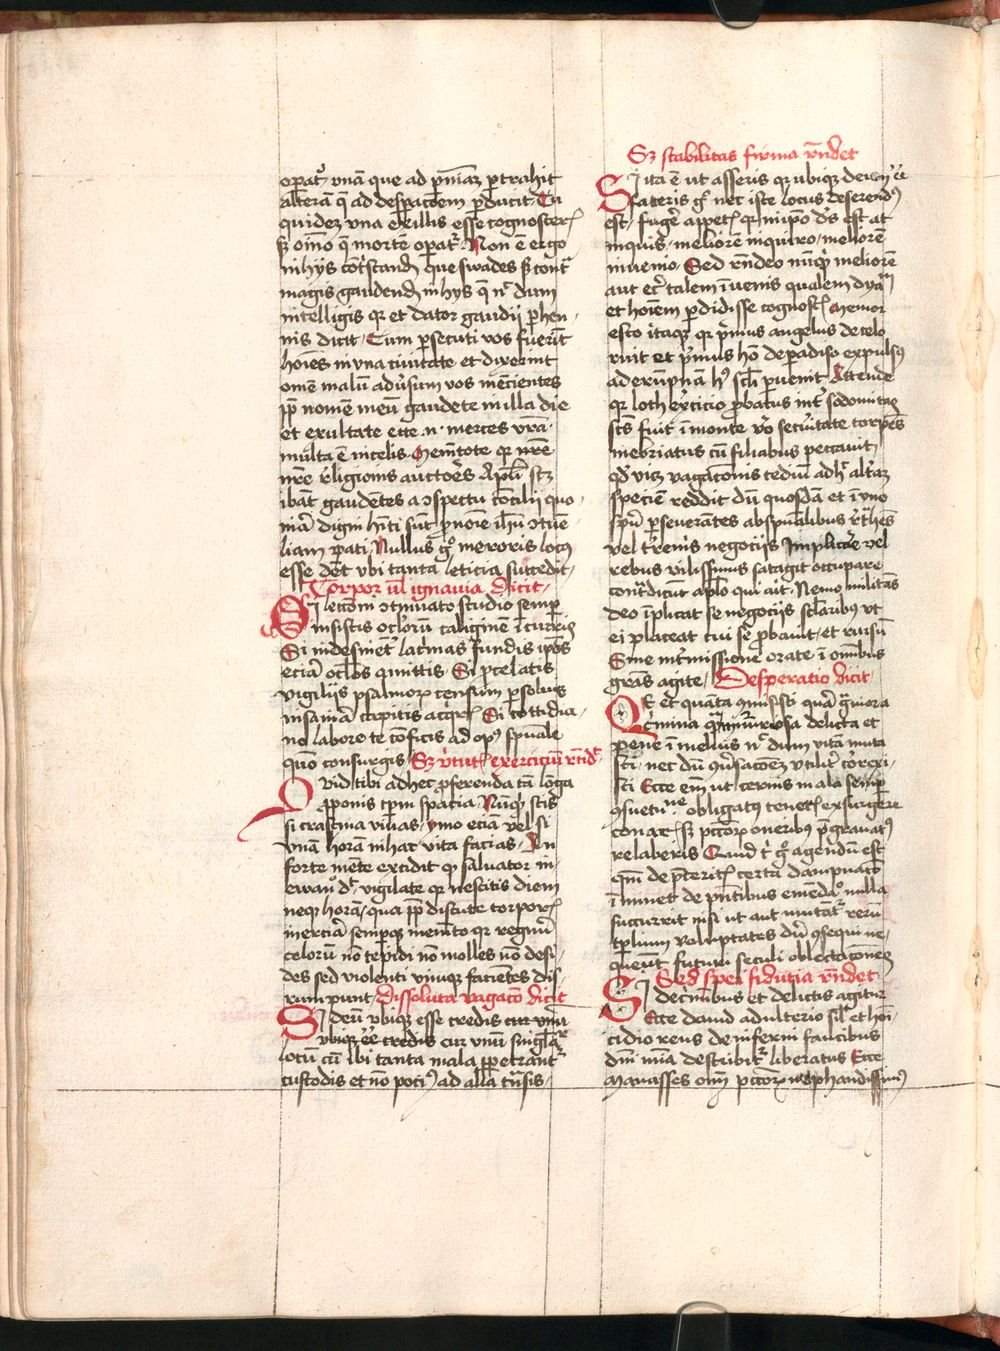 opat᷑ vnā que ad pn̄iaz ꝑtrahit
alterā q̄ ad despacoēm ꝑducit Tu
quidez vna ex illis esse cognoscer
sꝫ oīno q̄ mortē opat᷑ Non ē ergo
in hys cōtstand que swades sꝫ cont̄
magis gaudend in hys q̄ n dum
intelligis qꝛ et dator gaudii ꝑhen
nis dicit Cum ꝑsecuti vos fuerīt
hoīes in vna ciuitate et dixerint
omē malū adūsum vos mēcientes
ꝓp nomē meū gaudete in illa die
et exultate ecce .n. merces vrā
multa ē in celis Memētote qꝛ nrē
nrē religionis auctōres Apl̄i scꝫ
ibāt gaudētes a ɔspectu cōcilii quo
niā digni hīti sūt ꝓ noīe ihū ɔtue
liam pati Nullus gͦ meroris locus
esse dēt vbi tanta leticia succedit
Torpor vl ignauia dicit
Si lectōni ɔtinuato studio semꝑ
insistis oclorū caliginē īcurris
Si indesinēt lacrīas fundis ip̄os
eciā oclos amittis Si ꝓtelatis
vigiliis psalmorꝫ censum ꝑsoluis
insaniā capitis acqr̄ Si cottidia
no labore te cōficis ad opꝰ spūale
quō consurgis Sꝫ v̄tut exerciciū rn̄d
Quid tibi adhec ꝓferenda tā lōga
ꝓponis tpm̄ spacia Nūqͣ scis
si crastina viuas ymo eciā vel si
vnā horā in hac vita facias An
forte mēte excidit qꝛ saluator in
ewan dt vigilate qꝛ nescitis diem
neqꝫ horā qua ꝓp discute torpor
inerciā sempqꝫ memēto qꝛ regnū
celorū nō tepidi nō molles nō desi
des sed violenti vimqꝫ faciētes dis
rumpunt Dissoluta vagacō dicit
Si deū vbiqꝫ esse credis cur vnū
vbiqꝫ eē credis cur vnū singlarē
locū cū ibi tanta mala ꝑpetrant᷑
custodis et nō pociꝰ ad alia tn̄sis
Sꝫ stabilitas firma rn̄det
Si ita ē ut asseris qꝛ vbiqꝫ deū eē
fateris gͦ nec iste locus deserendꝰ
est fugē appet qꝛ in ip̄o ds̄ est at
inquis meliorē inquiro meliorē
inuenio Sed rn̄deo nūqͥd meliorē
aut cer talem īuenis qualem dyā
et hoīem ꝑdidisse cognosc Memor
esto itaqꝫ qꝛ pͥmus angelus de celo
ruit et pͥmus hō de ꝑadiso expulsꝰ
ad erūpnā hꝰ scl̄i ꝑuenit Attende
qꝛ loth exͥcicio ꝓbatus int̄ sodomitas
scs̄ fuit ī monte vͦ secͥitate torpēs
inebriatus cū filiabus peccauit
Qd̄ viz vagacōnis tediū adhͨ altāꝫ
speciē reddit dū quosdā et ī vno
spū ꝑseuerātes ab spūalibus retͣhēs
vel t̄renis negociis Implicāe vel
rebus vilissimis satagit occupare
contͣdicūt aplo qui ait Nemo militās
deo īplicat se negociis sclaribus vt
ei placeat cui sē ꝓbauit et rursū
Sine int̄missione orate ī omībus
grās agite Desperatio dicit
Qe et quāta cōmisisti quā gͣuiora
cͥmina qͣ innūrosa delicta et
pene ī melius n dum vitā muta
sti nec dū ɔuersacōeꝫ vtilit cōrexi
sti Ecce em̄ ut cernis mala semꝑ
ɔsuetuͥne obligatꝰ tenet exsurgere
conar sꝫ pctōꝝ oneribus p̄grauatꝰ
relaberis Quid r gͦ agendū est
qn̄ de p̄terit certa dampnatō
īminet de pn̄tibus emēdaͦ nulla
succurrit nisi ut aut mutāt᷑ rerū
tplium voluptates dū ɔsequi ne
queūt futuri seculi oblectacōnem
Sed spei fiducia rn̄det
Si de cͥinibus et delictis agitur
Ecce dauid adulterio sil̄ et homi
cidio reus de inferni faucibus
dn̄i mīa describit᷑ liberatus Ecce
Manasses oīm pctōꝝ nephandissimꝰ